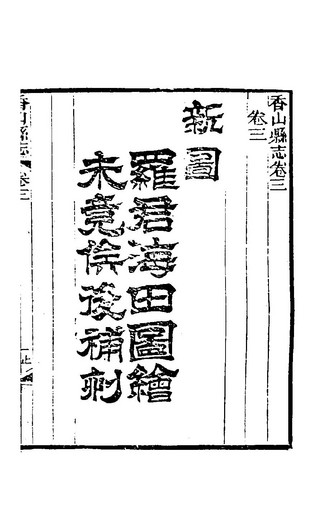 香山縣志卷三
卷三
新圖
羅君海田圖繪
未竟俟後補刺
香山縣志
卷三